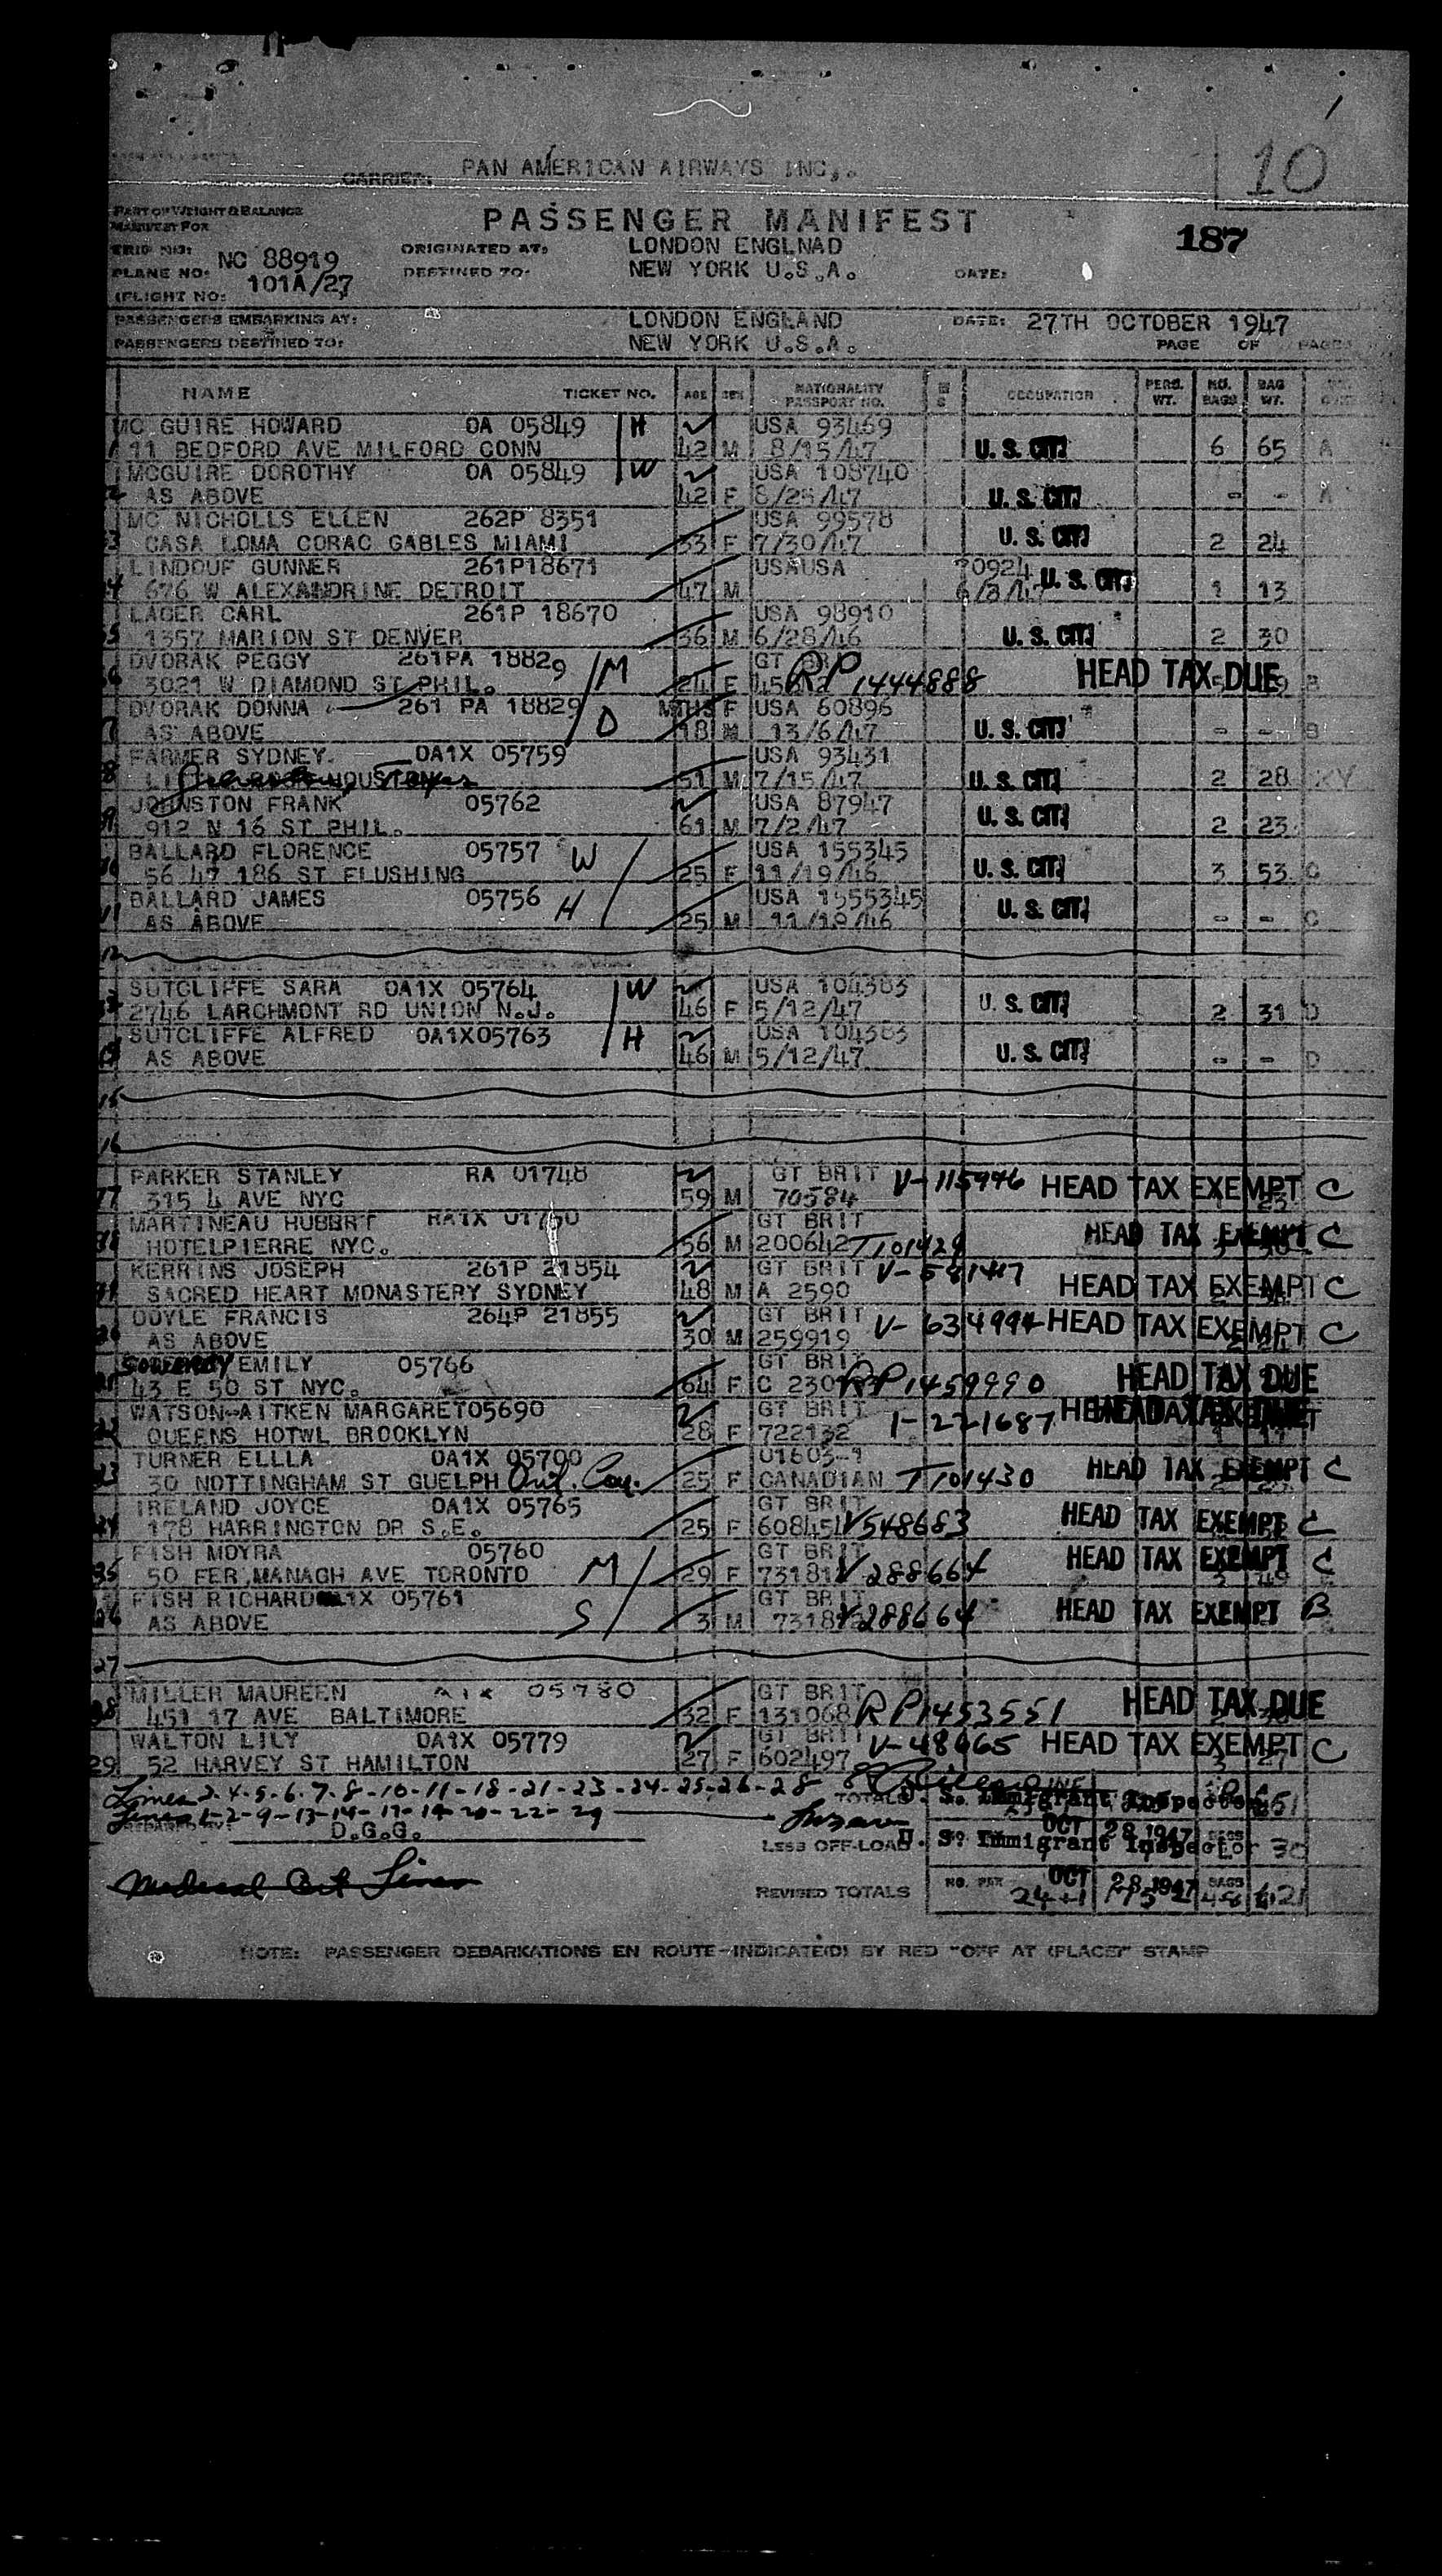 10
CARRIER: PAN AMERICAN AIRWAYS INC,.
PART OF WEIGHT & BALANCE
MANIFEST FOR
PASSENGER MANIFEST
187
TRIP NO:
PLANE NO: NC 88919
(FLIGHT NO: 101A/27
ORIGINATED AT: LONDON ENGLNAD
DESTINED TO: NEW YORK U.S.A. DATE:
PASSENGERS EMBARKING AT: LONDON ENGLAND DATE: 27TH OCTOBER 1947
PASSENGERS DESTINED TO: NEW YORK U.S.A. PAGE OF PAGES
NAME TICKET NO. AGE SEX NATIONALITY PASSPORT NO. OCCUPATION PERS. WT. NO. BAGS BAG WT.
MC GUIRE HOWARD OA 05849 H USA 93469
11 BEDFORD AVE MILFORD CONN 42 M 8/15/47 U. S. CIT. 6 65 A
MCGUIRE DOROTHY OA 05849 W USA 108740
AS ABOVE 42 F 8/25/47 U. S. CIT. - - A
MC NICHOLLS ELLEN 262P 8351 USA 99578
3 CASA LOMA CORAC GABLES MIAMI 33 F 7/30/47 U. S. CIT. 2 24
LINDOUF GUNNER 261P18671 USAUSA 70924
4 676 W ALEXANDRINE DETROIT 47 M U. S. CIT. 1 13
LAGER CARL 261P 18670 USA 98910
5 1357 MARION ST DENVER 36 M 6/28/46 U. S. CIT. 2 30
DVORAK PEGGY 261PA 18829 M GT
6 3021 W DIAMOND ST PHIL. 24 F RP 1444888 HEAD TAX DUE B
DVORAK DONNA 261 PA 18829 D MTHS F USA 60896
AS ABOVE 18 13/6/47 U. S. CIT. - - B
FARMER SYDNEY. OA1X 05759 USA 93431
8 HOUSTON 51 M 7/15/47 U. S. CIT. 2 28 XY
JOHNSTON FRANK 05762 USA 87947
9 912 N 16 ST PHIL. 61 M 7/2/47 U. S. CIT. 2 23
BALLARD FLORENCE 05757 W USA 155345
56 47 186 ST FLUSHING 25 F 11/19/46 U. S. CIT. 3 53 C
BALLARD JAMES 05756 H USA 1555345
11 AS ABOVE 25 M 11/19/46 U. S. CIT. - - C
12
SUTCLIFFE SARA OA1X 05764 W USA 104383
2746 LARCHMONT RD UNION N.J. 46 F 5/12/47 U. S. CIT. 2 31 D
SUTCLIFFE ALFRED OA1X05763 H USA 104383
AS ABOVE 46 M 5/12/47 U. S. CIT. - - D
15
16
PARKER STANLEY RA 01748 GT BRIT V-115996
17 315 4 AVE NYC 59 M 70584 HEAD TAX EXEMPT C
MARTINEAU HUBERT RA1X GT BRIT
HOTELPIERRE NYC. 56 M 200642 T101429 HEAD TAX EXEMPT C
KERRINS JOSEPH 261P 21854 GT BRIT
SACRED HEART MONASTERY SYDNEY 48 M A 2590 HEAD TAX EXEMPT C
DOYLE FRANCIS 264P 21855 GT BRIT V-634994
AS ABOVE 30 M 259919 HEAD TAX EXEMPT C
EMILY 05766 GT BRIT
43 E 50 ST NYC. 64 F RP1459990 HEAD TAX DUE
WATSON-AITKEN MARGARET05690 GT BRIT 1-221687
QUEENS HOTWL BROOKLYN 28 F 722132
TURNER ELLLA OA1X 05700 01603-1
23 30 NOTTINGHAM ST GUELPH Ont. Can. 25 F CANADIAN T101430 HEAD TAX EXEMPT C
IRELAND JOYCE OA1X 05765 GT BRIT
24 178 HARRINGTON DR S.E. 25 F V548683 HEAD TAX EXEMPT C
FISH MOYRA 05760 M GT BRIT
50 FER,MANAGH AVE TORONTO 29 F V288664 HEAD TAX EXEMPT C
FISH RICHARD 1X 05761 S GT BRIT
26 AS ABOVE 3 M V288664 HEAD TAX EXEMPT B
27
MILLER MAUREEN 05780 GT BRIT
28 451 17 AVE BALTIMORE 32 F 131068 RP1453551 HEAD TAX DUE
WALTON LILY OA1X 05779 GT BRIT
29 52 HARVEY ST HAMILTON 27 F 602497 HEAD TAX EXEMPT C
Lines 3-4-5-6-7-8-10-11-18-21-23-24-25-26-28
Lines 1-2-9-13-14-17-19-20-22-29
TOTALS U. S. Immigrant Inspector
PREPARED BY: D.G.G.
OCT 28 1947
LESS OFF-LOAD U. S. Immigrant Inspector 30
REVISED TOTALS NO. PAX 24+1 OCT 28 1947 BAGS 48 621
NOTE: PASSENGER DEBARKATIONS EN ROUTE-INDICATE(D) BY RED "OFF AT (PLACE)" STAMP